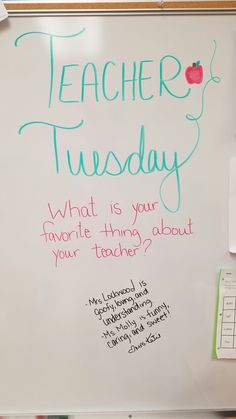 TEACHER
Tuesday
What is your
favorite thing about
your teacher?
- Mrs. Lockwood is
goofy, loving, and
understanding
- Ms. Molly is funny,
caring, and sweet!